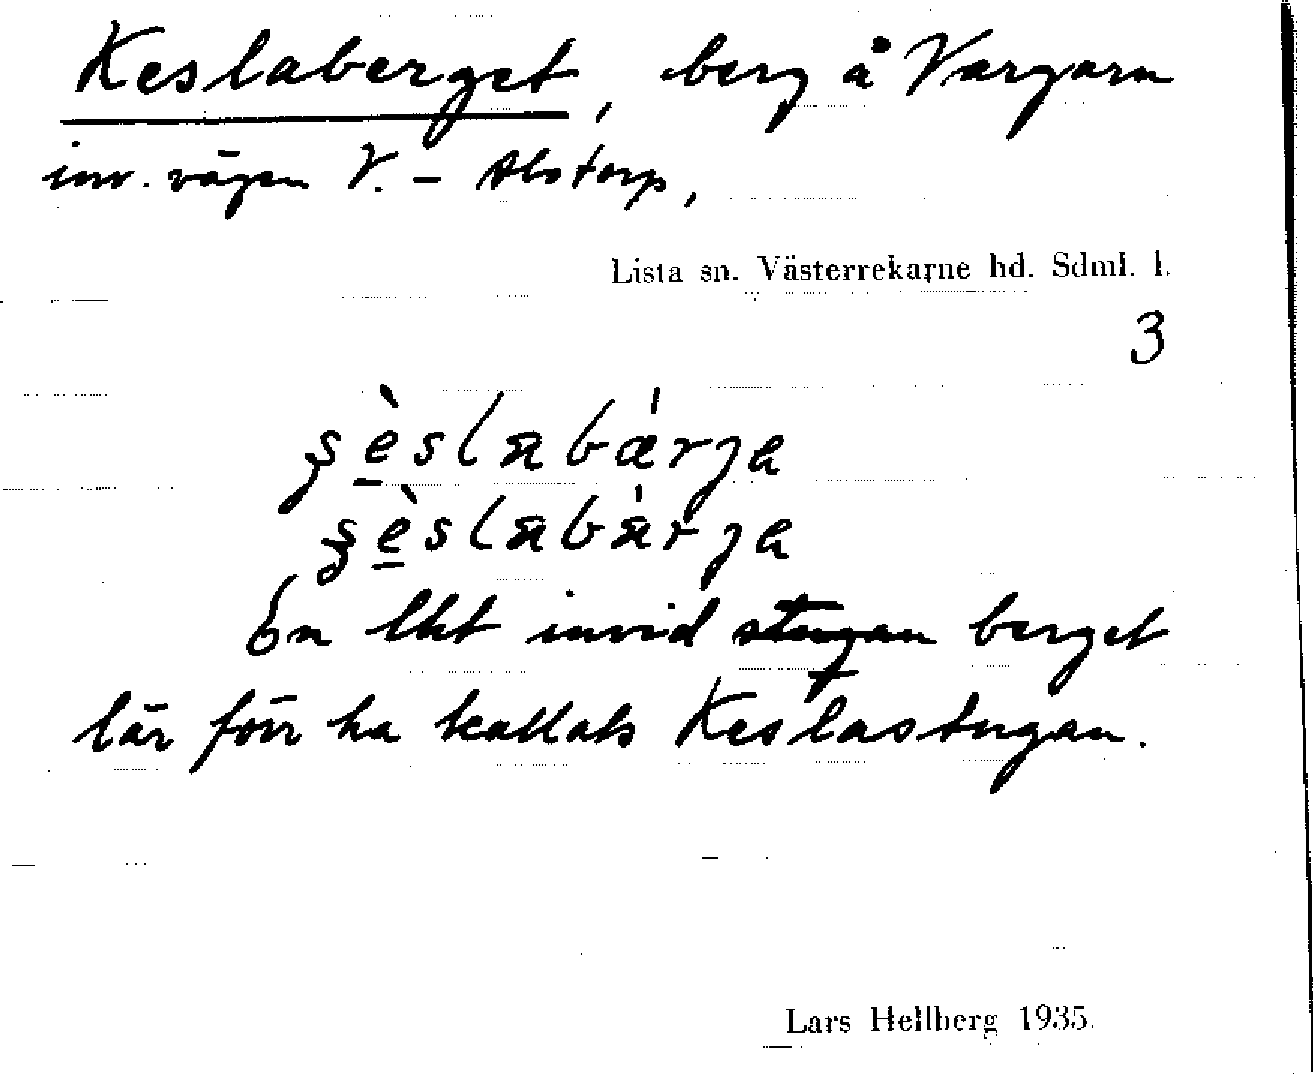 Keslaberget, berg å Vargarn
inv. vägen V. – Alstorp,
Lista sn. Västerrekarne hd. Sdml. l.
3
En lht invid stugan berget
lär förr ha kallats Keslastugan.
Lars Hellberg 1935.